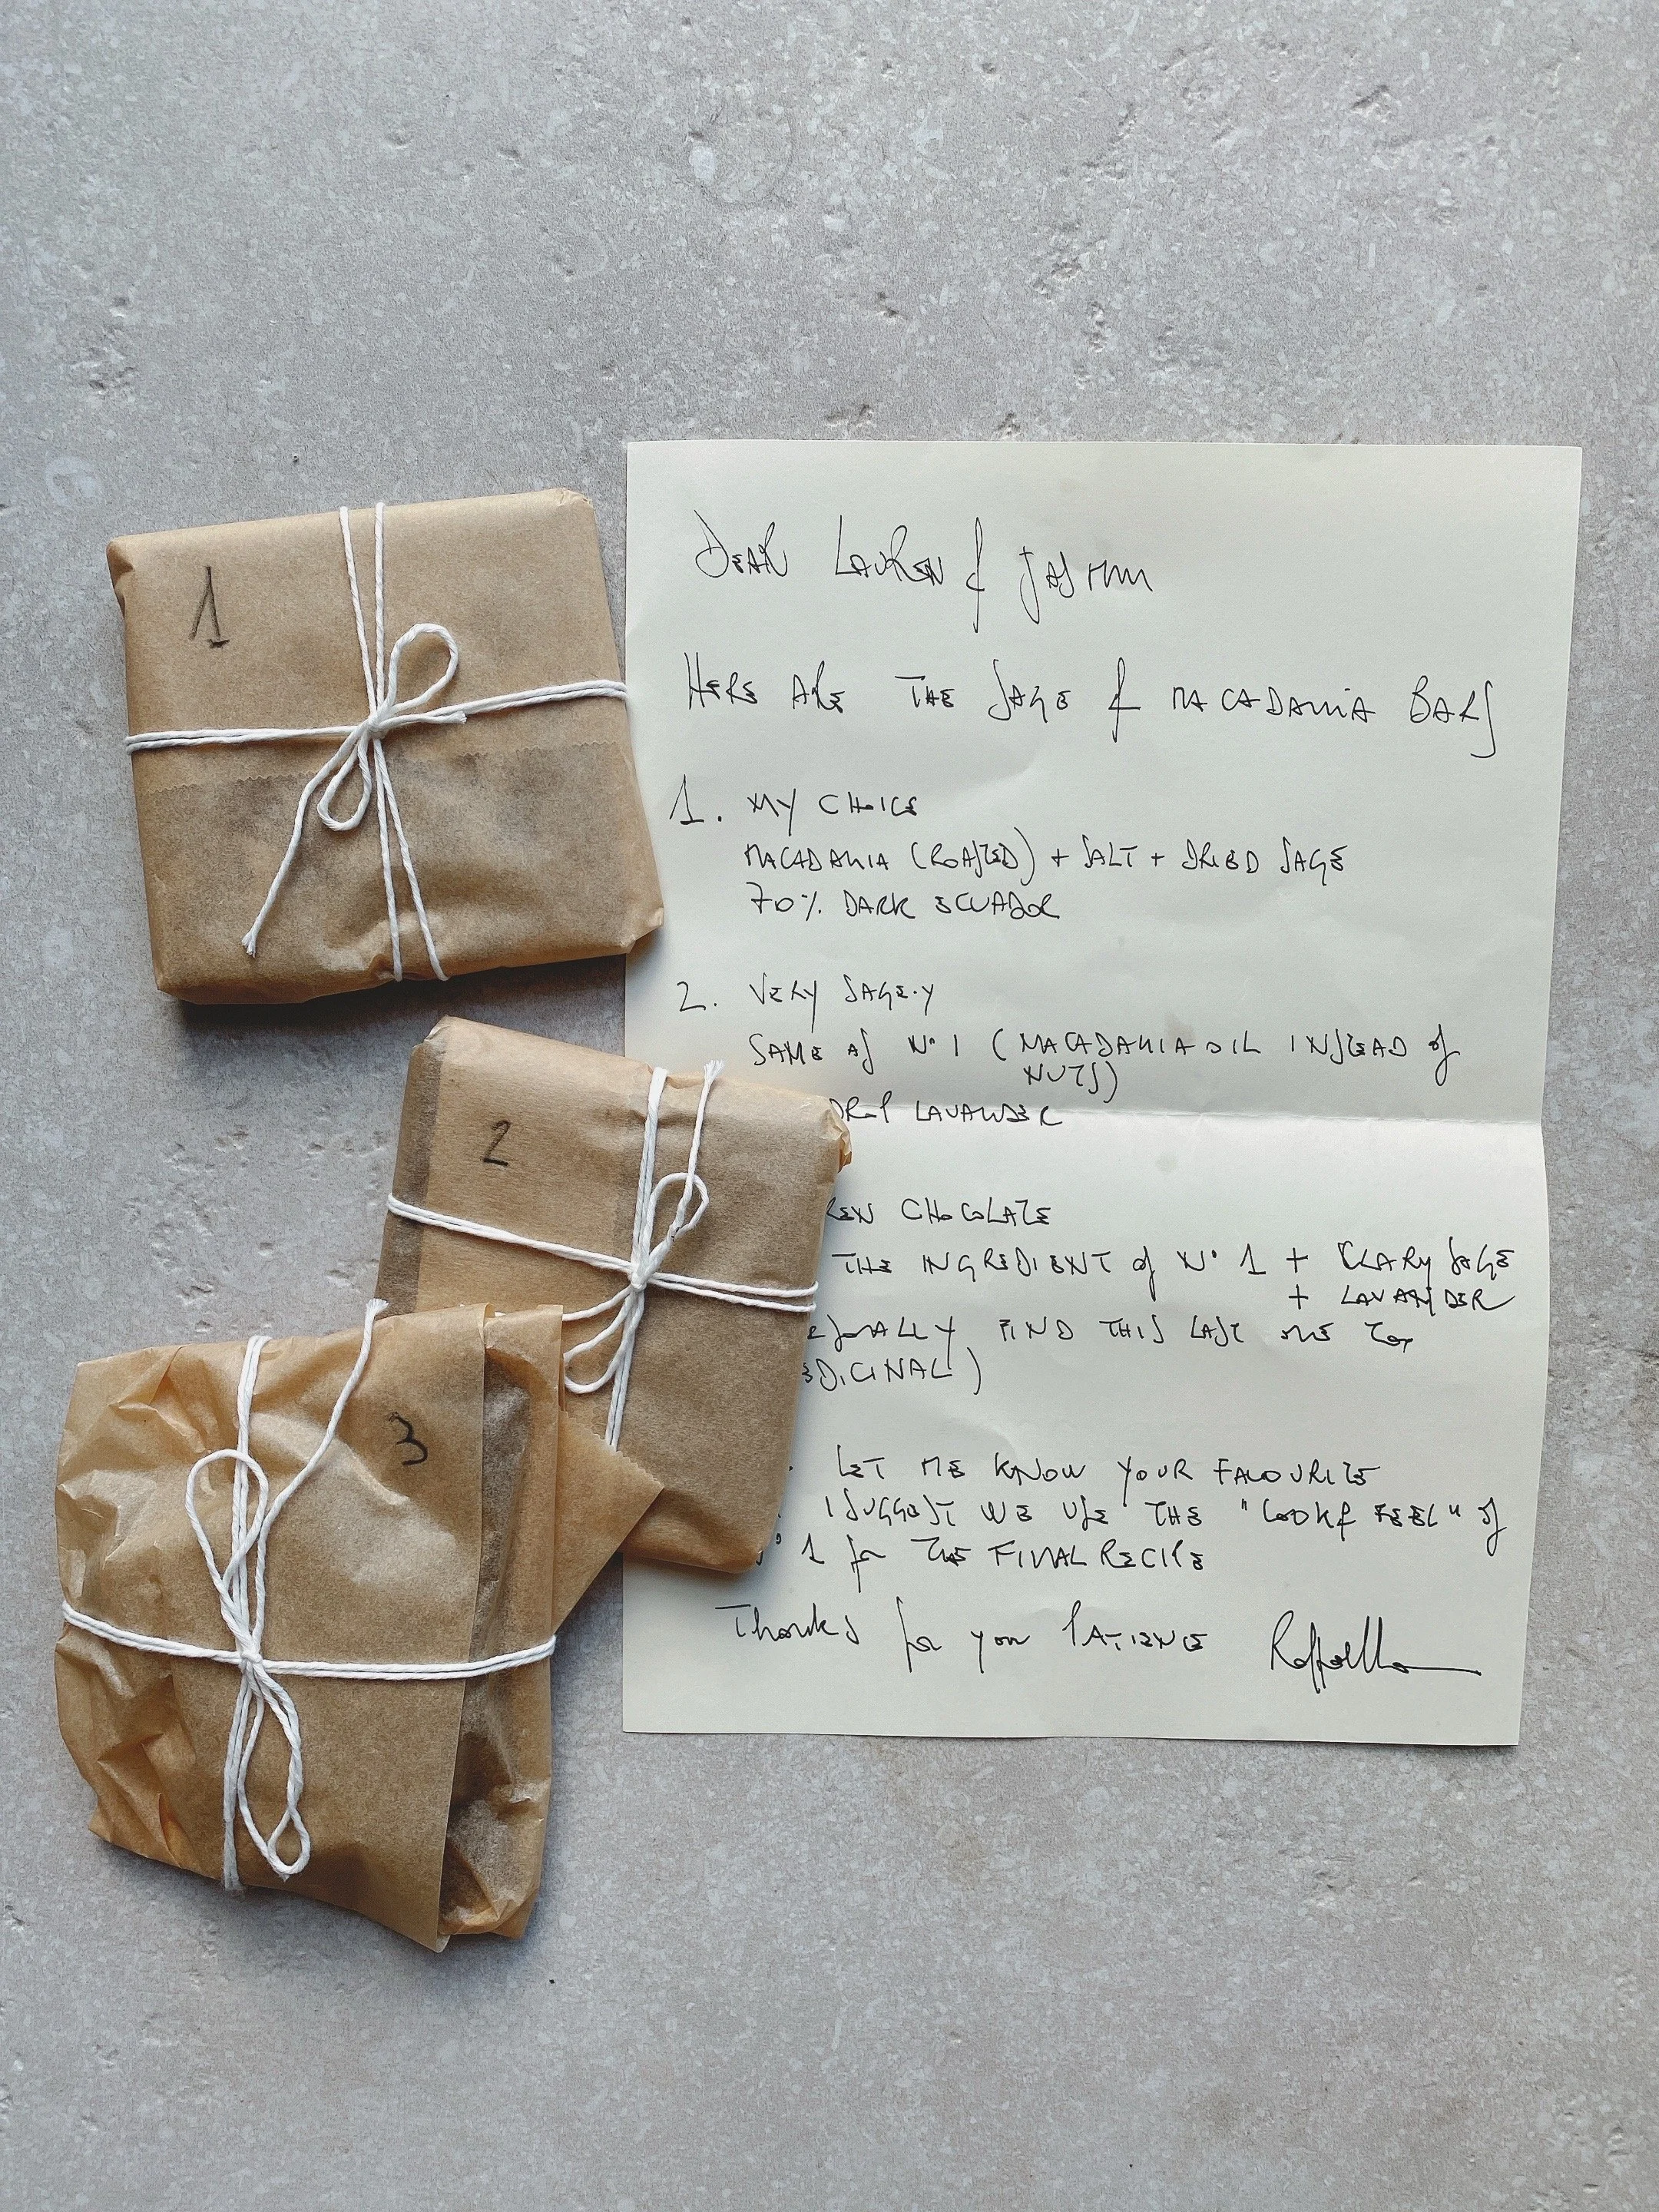 1
2
3
DEAR LAUREN & JASMIN
HERE ARE THE SAGE & MACADAMIA BARS
1. MY CHOICE
MACADAMIA (ROASTED) + SALT + DRIED SAGE
70% DARK ECUADOR
2. VERY SAGE-Y
SAME AS N° 1 (MACADAMIA OIL INSTEAD of
NUTS)
DROP LAVANDER
CHOCOLATE
THE INGREDIENT of N° 1 + CLARY SAGE
+ LAVANDER
FIND THIS LAST ONE TOO
EDICINAL)
LET ME KNOW YOUR FAVOURITE
I SUGGEST WE USE THE "LOOK & FEEL" of
1 for THE FINAL RECIPE
Thanks for your PATIENCE Raffaella